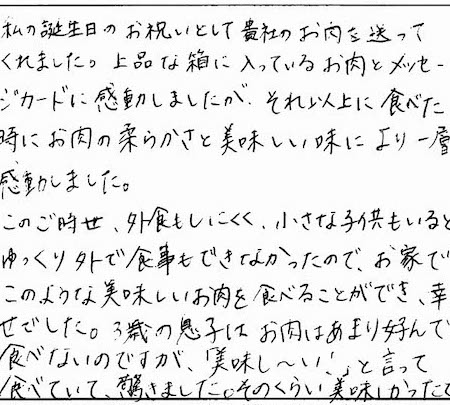 私の誕生日のお祝いとして貴社のお肉を送って
くれました。上品な箱に入っているお肉とメッセー
ジカードに感動しましたが、それ以上に食べた
時にお肉の柔らかさと美味しい味により一層
感動しました。
このご時世、外食もしにくく、小さな子供もいると
ゆっくり外で食事もできなかったので、お家で
このような美味しいお肉を食べることができ、幸
せでした。3歳の息子はお肉はあまり好んで
食べないのですが、「美味し〜い!」と言って
食べていて、驚きました。そのくらい美味しかったで